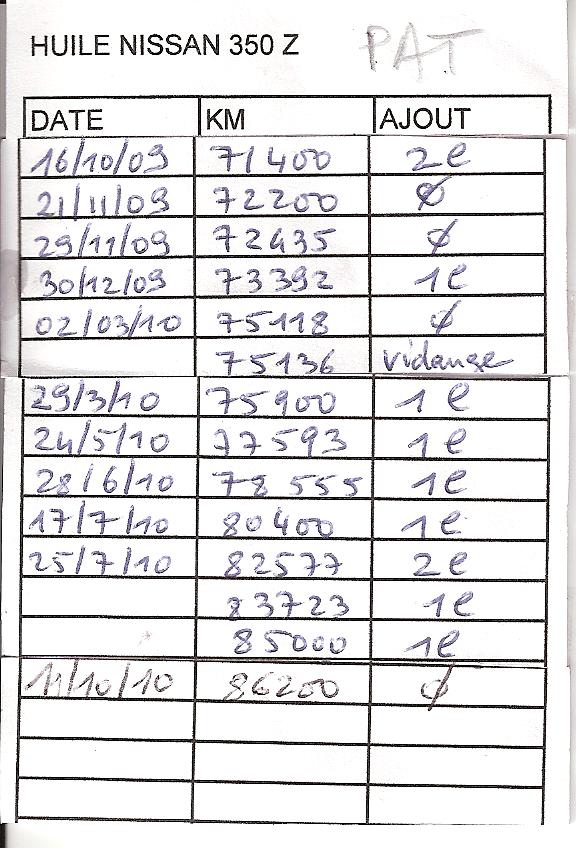 HUILE NISSAN 350 Z PAT
DATE KM AJOUT
16/10/09 71400 2l
21/11/09 72200 ∅
29/11/09 72435 ∅
30/12/09 73392 1l
02/03/10 75118 ∅
75136 vidange
29/3/10 75900 1l
24/5/10 77593 1l
28/6/10 78555 1l
17/7/10 80400 1l
25/7/10 82577 2l
83723 1l
85000 1l
11/10/10 86200 ∅